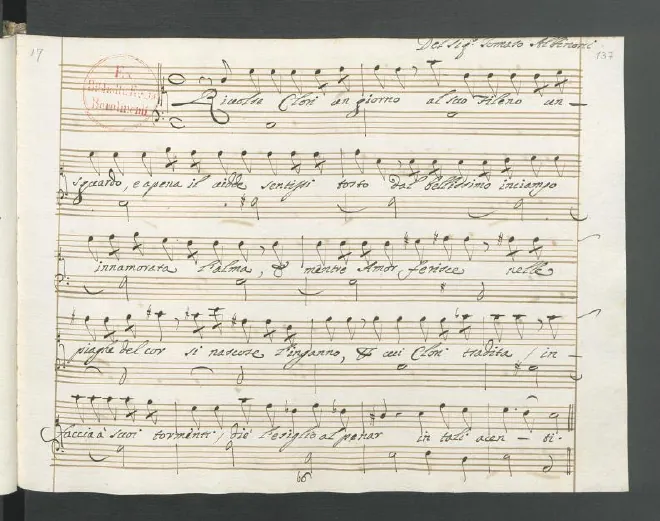 17
Del Sig.r Tomaso Albinoni
137
Ex
Biblioth. Regia
Berolinensi
Rivolse Clori un giorno al suo Fileno un —
sguardo, e apena il vide sentissi tosto dal bellissimo inciampo
innamorata l'alma, & mentre Amor ferisce nelle
piaghe del cor si nascose l'inganno, & cosi Clori tradita / in —
faccia à suoi tormenti / diè l'esiglio al penar in tali acen — ti.